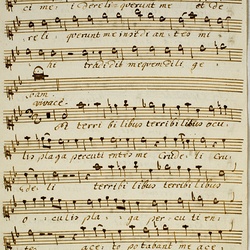 ci me, et dereliquerunt me et de
reliquerunt me insidiantes mi
hi tradidit me quem dilige
bam.
vivace.
et terribilibus terribilibus ocu
lis plaga percutientes me crudeli cru
deli terribilibus terribilibus
oculis plaga percutien
tes aceto potabant me ace